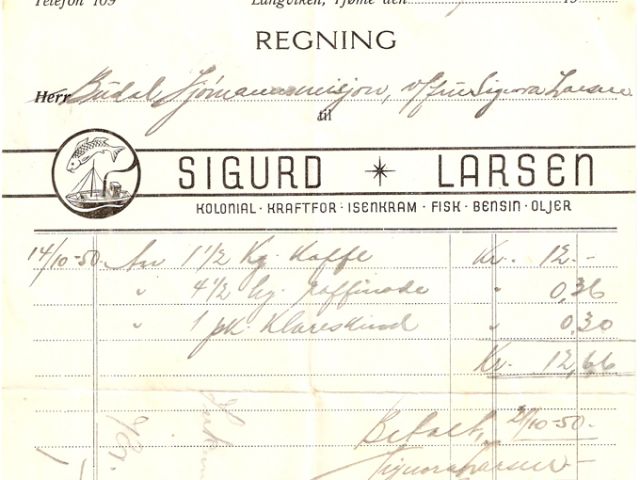 Telefon 109 Langviken, Tjøme den 19
REGNING
Herr Budal Sjømannsmisjon, v/fru Signora Larsen
til
SIGURD LARSEN
KOLONIAL · KRAFTFOR · ISENKRAM · FISK · BENSIN · OLJER
14/10-50. An 1 1/2 Kg. Kaffe Kr. 12.-
" 4 1/2 hg. raffinade " 0,36
" 1 pk. " 0,30
Kr. 12,66
Betalt, 21/10-50.
Signora Larsen